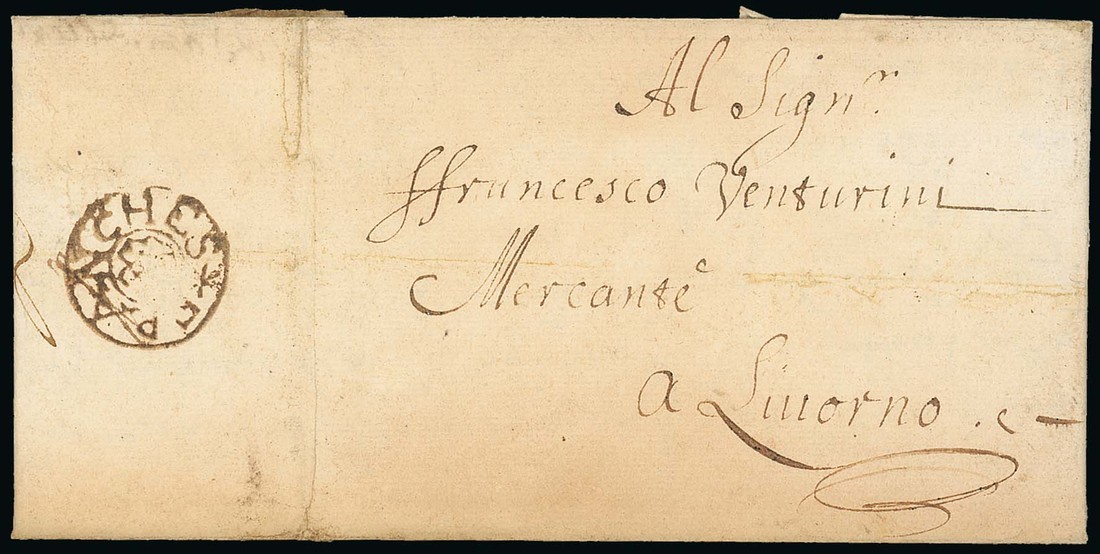 Al Sign.r
ffrancesco Venturini
Mercante
a Liuorno.